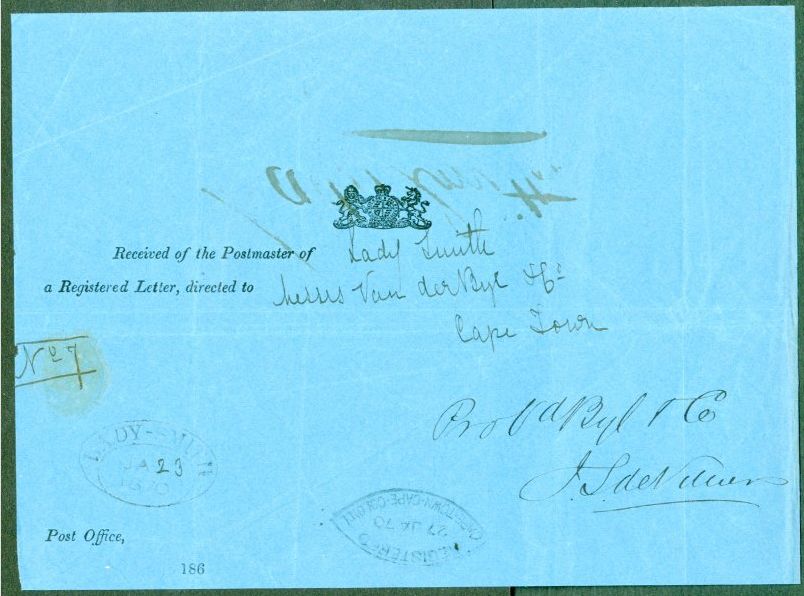 Received of the Postmaster of Lady Smith
a Registered Letter, directed to Messrs Van der Byl & Co
Cape Town
No 7
Pro Vd Byl & Co
J.S. de Villiers
LADY-SMITH
JA 23
1870
REGISTERED
27 JA 70
CAPE-TOWN-CAPE-COLONY
Post Office,
186